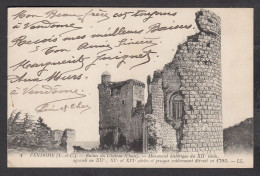 Mon Beau frère est toujours
à Vendôme
Recois mes meilleurs Baisers
Ton Amie Sincère
Marguerite Guignet
Aux Murs
à Vendôme
4 VENDOME (L.-et-C.). — Ruines du Château (Ouest). — Monument historique du XIe siècle,
agrandi au XIIe, XVe et XVIe siècles et presque entièrement détruit en 1793. — LL.